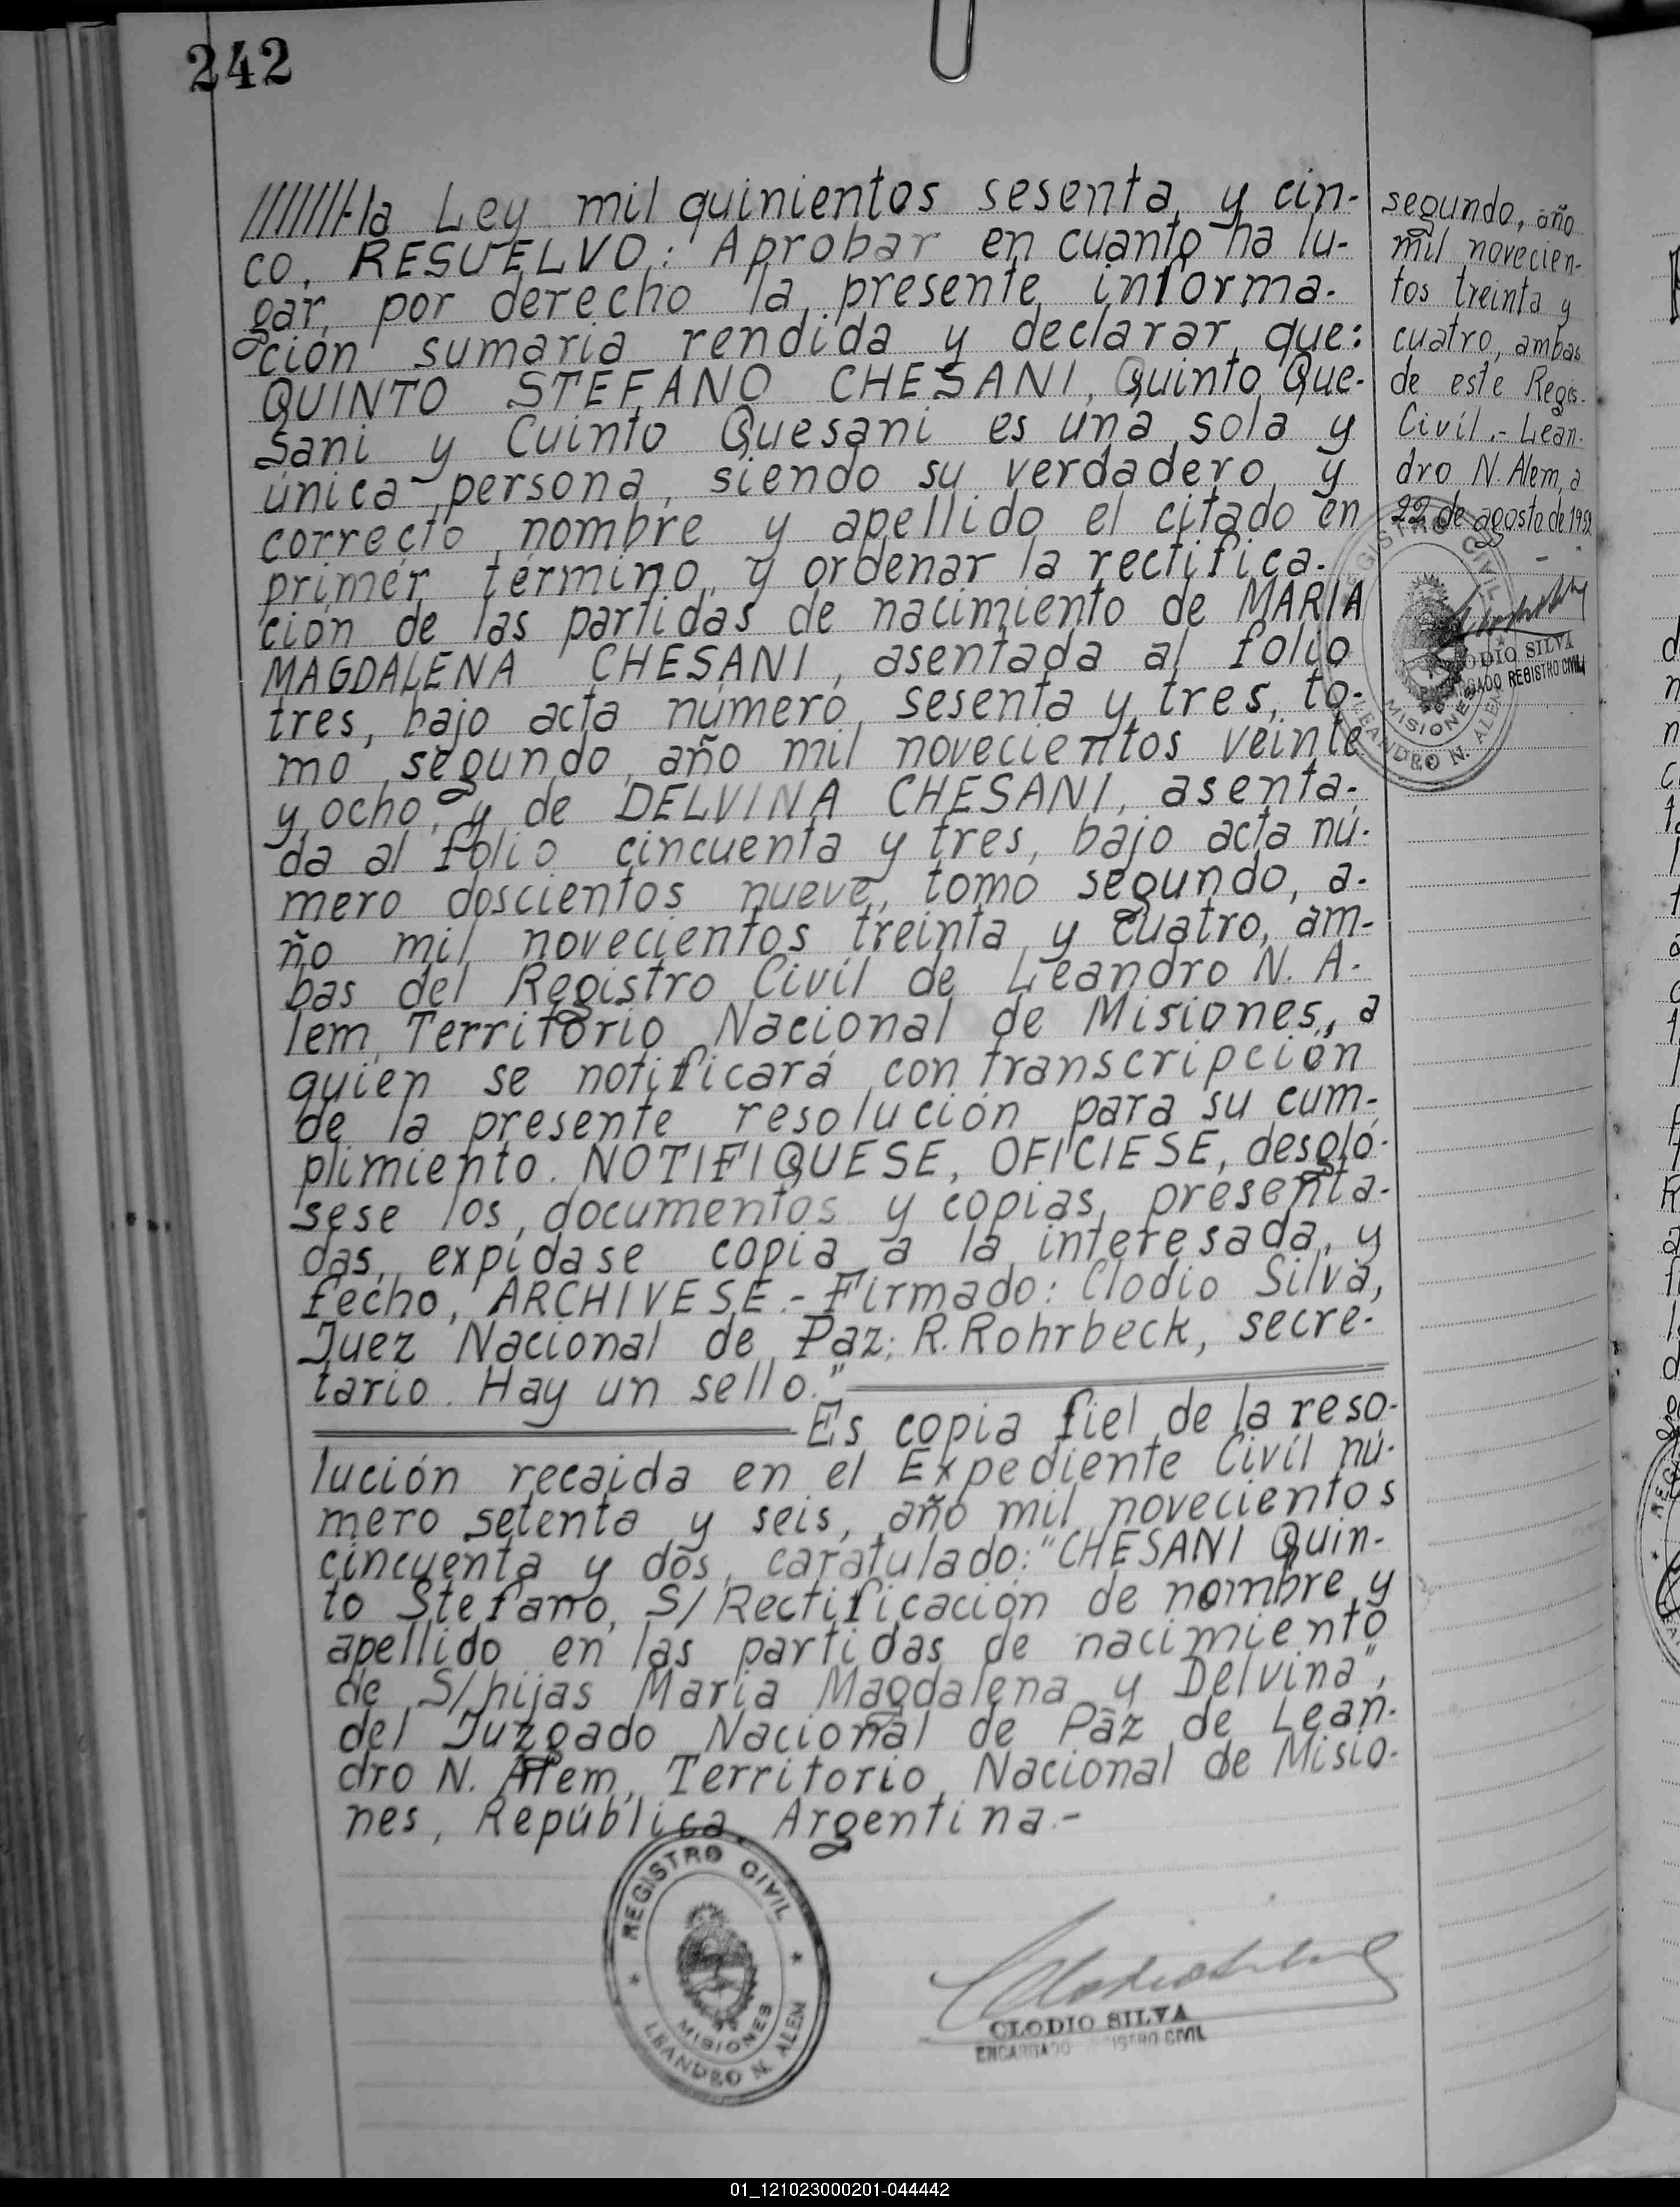 242
///////-la Ley mil quinientos sesenta y cin-
co, RESUELVO: Aprobar en cuanto ha lu-
gar por derecho la presente informa-
ción sumaria rendida y declarar que:
QUINTO STEFANO CHESANI, Quinto Que-
sani y Cuinto Quesani es una sola y
única persona, siendo su verdadero y
correcto nombre y apellido el citado en
primer término, y ordenar la rectifica-
ción de las partidas de nacimiento de MARIA
MAGDALENA CHESANI, asentada al folio
tres, bajo acta número sesenta y tres, to-
mo segundo, año mil novecientos veinte
y ocho, y de DELVINA CHESANI, asenta-
da al folio cincuenta y tres, bajo acta nú-
mero doscientos nueve, tomo segundo, a-
ño mil novecientos treinta y cuatro, am-
bas del Registro Civil de Leandro N. A-
lem, Territorio Nacional de Misiones, a
quien se notificará con transcripción
de la presente resolución para su cum-
plimiento. NOTIFIQUESE, OFICIESE, desgló-
sese los documentos y copias presenta-
das, expídase copia a la interesada, y
fecho, ARCHIVESE.- Firmado: Clodio Silva,
Juez Nacional de Paz; R. Rohrbeck, secre-
tario. Hay un sello."
Es copia fiel de la reso-
lución recaida en el Expediente Civil nú-
mero setenta y seis, año mil novecientos
cincuenta y dos, caratulado: "CHESANI Quin-
to Stefano, S/Rectificación de nombre y
apellido en las partidas de nacimiento
de S/hijas María Magdalena y Delvina",
del Juzgado Nacional de Paz de Lean-
dro N. Alem, Territorio Nacional de Misio-
nes, República Argentina.-
segundo, año
mil novecien-
tos treinta y
cuatro, ambas
de este Regis.
Civil.- Lean-
dro N. Alem, a
22 de agosto de 1952
REGISTRO CIVIL
MISIONES
LEANDRO N. ALEM
CLODIO SILVA
ENCARGADO REGISTRO CIVIL
REGISTRO CIVIL
MISIONES
LEANDRO N. ALEM
Clodio Silva
CLODIO SILVA
ENCARGADO REGISTRO CIVIL
01_121023000201-044442